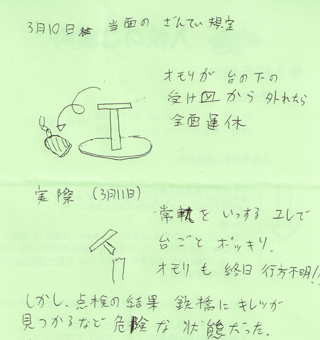 3月10日 当面の ざんてい規定
オモリが 台の下の
受け皿から 外れたら
全面運休
実際 (3月11日)
常軌を いっする ユレで
台ごと ポッキリ.
オモリも 終日 行方不明!!
しかし、点検の結果 鉄橋に キレツが
見つかるなど 危険な 状態だった.